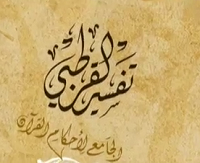 تفسير القرطبي
الجامع لأحكام القرآن